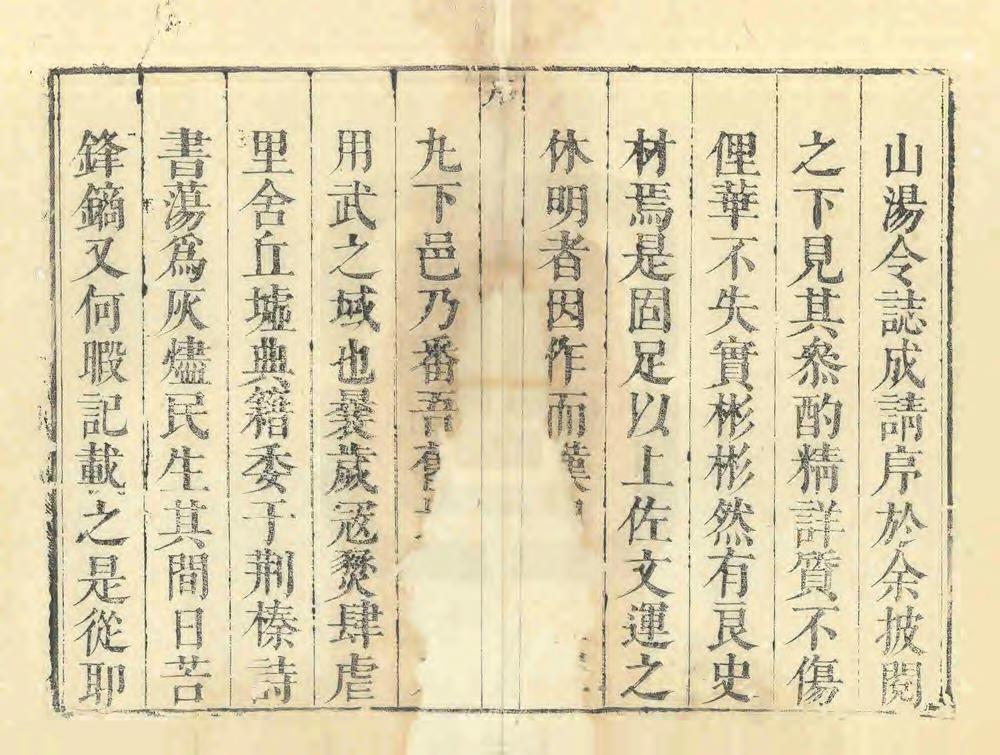 山湯令誌成請序於余披閱
之下見其叅酌精詳質不傷
俚華不失實彬彬然有良史
材焉是固足以上佐文運之
休明者因作而漢
序
九下邑乃番吾
用武之域也曩歲寇燹肆虐
里舍丘墟典籍委于荆榛詩
書蕩爲灰燼民生其間日苦
鋒鏑又何暇記載之是從耶